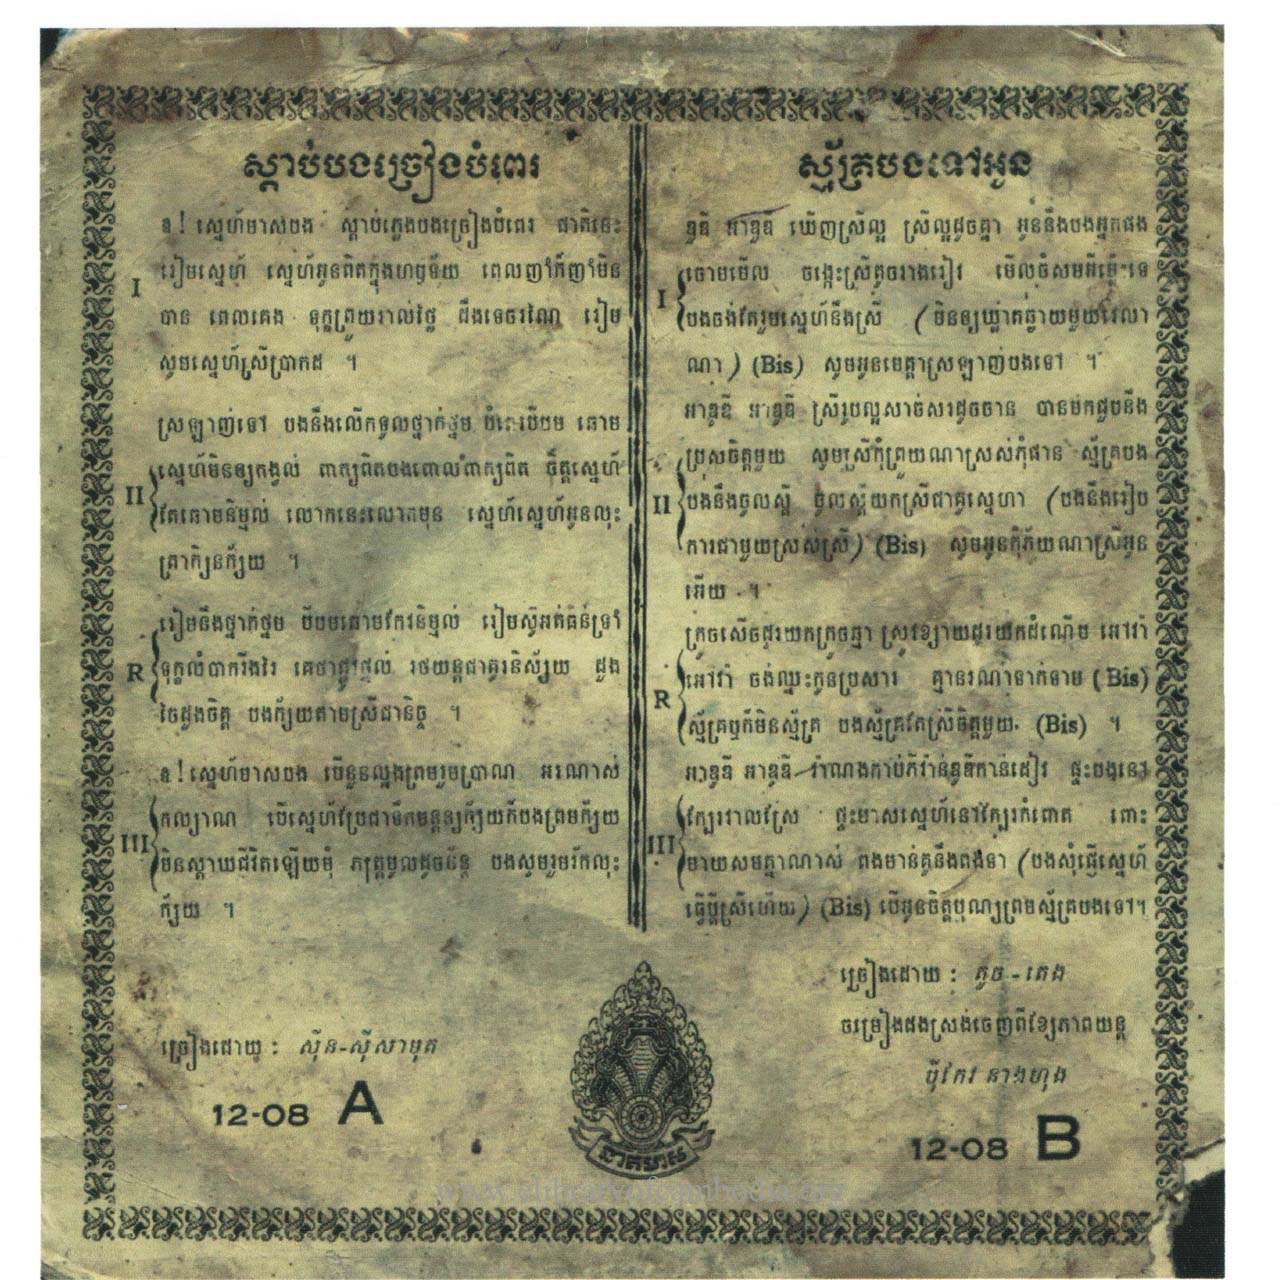 ស្តាប់បងច្រៀងបំពេរ
ឧ! ស្នេហ៍មាសបង ស្តាប់ភ្លេងបងច្រៀងបំពេរ ជាតិនេះ
រៀមស្នេហ៍ ស្នេហ៍អូនពិតក្នុងហឫទ័យ ពេលញាំក៏ញាំមិន
I
បាន ពេលគេង ទុក្ខព្រួយរាល់ថ្ងៃ ដឹងទេចរណៃ រៀម
សូមស្នេហ៍ស្រីប្រាកដ ។
ស្រឡាញ់ទៅ បងនឹងលើកទូលថ្នាក់ថ្នម បីបម ឆោម
ស្នេហ៍មិនឲ្យកង្វល់ ពាក្យពិតបងពោលពាក្យពិត ចិត្តស្នេហ៍
II
តែឆោមនិម្មល់ លោកនេះលោកមុន ស្នេហ៍ស្នេហ៍អូនលុះ
ត្រាក្សិនក្ស័យ ។
រៀមនឹងថ្នាក់ថ្នម បីបមឆោមកែវនិម្មល់ រៀមស៊ូអត់ធន់ទ្រាំ
R
ទុក្ខលំបាករឹងរៃ គេថាផ្លូវផ្តល់ រថយន្តជាគូរនិស្ស័យ ដួង
ចៃដួងចិត្ត បងក្ស័យតាមស្រីជានិច្ច ។
ឧ! ស្នេហ៍មាសបង បើនួនល្អងព្រមរួមប្រាណ អរណាស់
កល្យាណ បើស្នេហ៍ប្រែជាទឹកមន្តឲ្យក្ស័យក៏បងព្រមក្ស័យ
III
មិនស្តាយជីវិតឡើយមុំ ភក្ត្រមូលដូចច័ន្ទ បងសូមរួមរ័កលុះ
ក្ស័យ ។
ច្រៀងដោយ : ស៊ីន-ស៊ីសាមុត
12-08 A
ស្ម័គ្របងទៅអូន
ឌូឌី អាឌូឌី ឃើញស្រីល្អ ស្រីល្អដូចគ្នា អូននឹងបងអ្នកផង
ចោមមើល ចង្កេះស្រីតូចរាងរៀវ មើលធំសមពីត្រើះទេ
I
បងចង់តែរួមស្នេហ៍នឹងស្រី (មិនឲ្យឃ្លាតឆ្ងាយមួយវេលា
ណា) (Bis) សូមអូនមេត្តាស្រឡាញ់បងទៅ ។
អាឌូឌី អាឌូឌី ស្រីរូបល្អសាច់សរដូចចាន បានមកជួបនឹង
ប្រុសចិត្តមួយ សូមស្រីកុំព្រួយណាស្រស់កុំផាន ស្ម័គ្របង
II
បងនឹងចូលស្តី ចូលស្តីយកស្រីជាគូស្នេហា (បងនឹងរៀប
ការជាមួយស្រស់ស្រី) (Bis) សូមអូនកុំភ័យណាស្រីអូន
អើយ ។
ក្រូចសើចដូរយកក្រូចឆ្មា ស្រូវខ្សាយដូរយកដំណើប អៅវ៉ា
អៅវ៉ា ចង់ឈ្នះកូនប្រសារ គ្មានរណាទាក់ទាម (Bis)
R
ស្ម័គ្រឬក៏មិនស្ម័គ្រ បងស្ម័គ្រតែស្រីចិត្តមួយ (Bis) ។
អាឌូឌី អាឌូឌី កាន់ដៀវ ផ្ទះបងនៅ
ក្បែរវាលស្រែ ផ្ទះមាសស្នេហ៍នៅក្បែរកំពោត ពោះ
III
មាយសមគ្នាណាស់ ពងមាន់គូនឹងពងទា (បងសុំធ្វើស្នេហ៍
ធ្វើប្តីស្រីហើយ) (Bis) បើអូនចិត្តបុណ្យព្រមស្ម័គ្របងទៅ។
ច្រៀងដោយ : តូច-តេង
ចម្រៀងដងស្រង់ចេញពីខ្សែភាពយន្ត
ប៉ីកែវ នាងហុង
12-08 B
នាគមាស